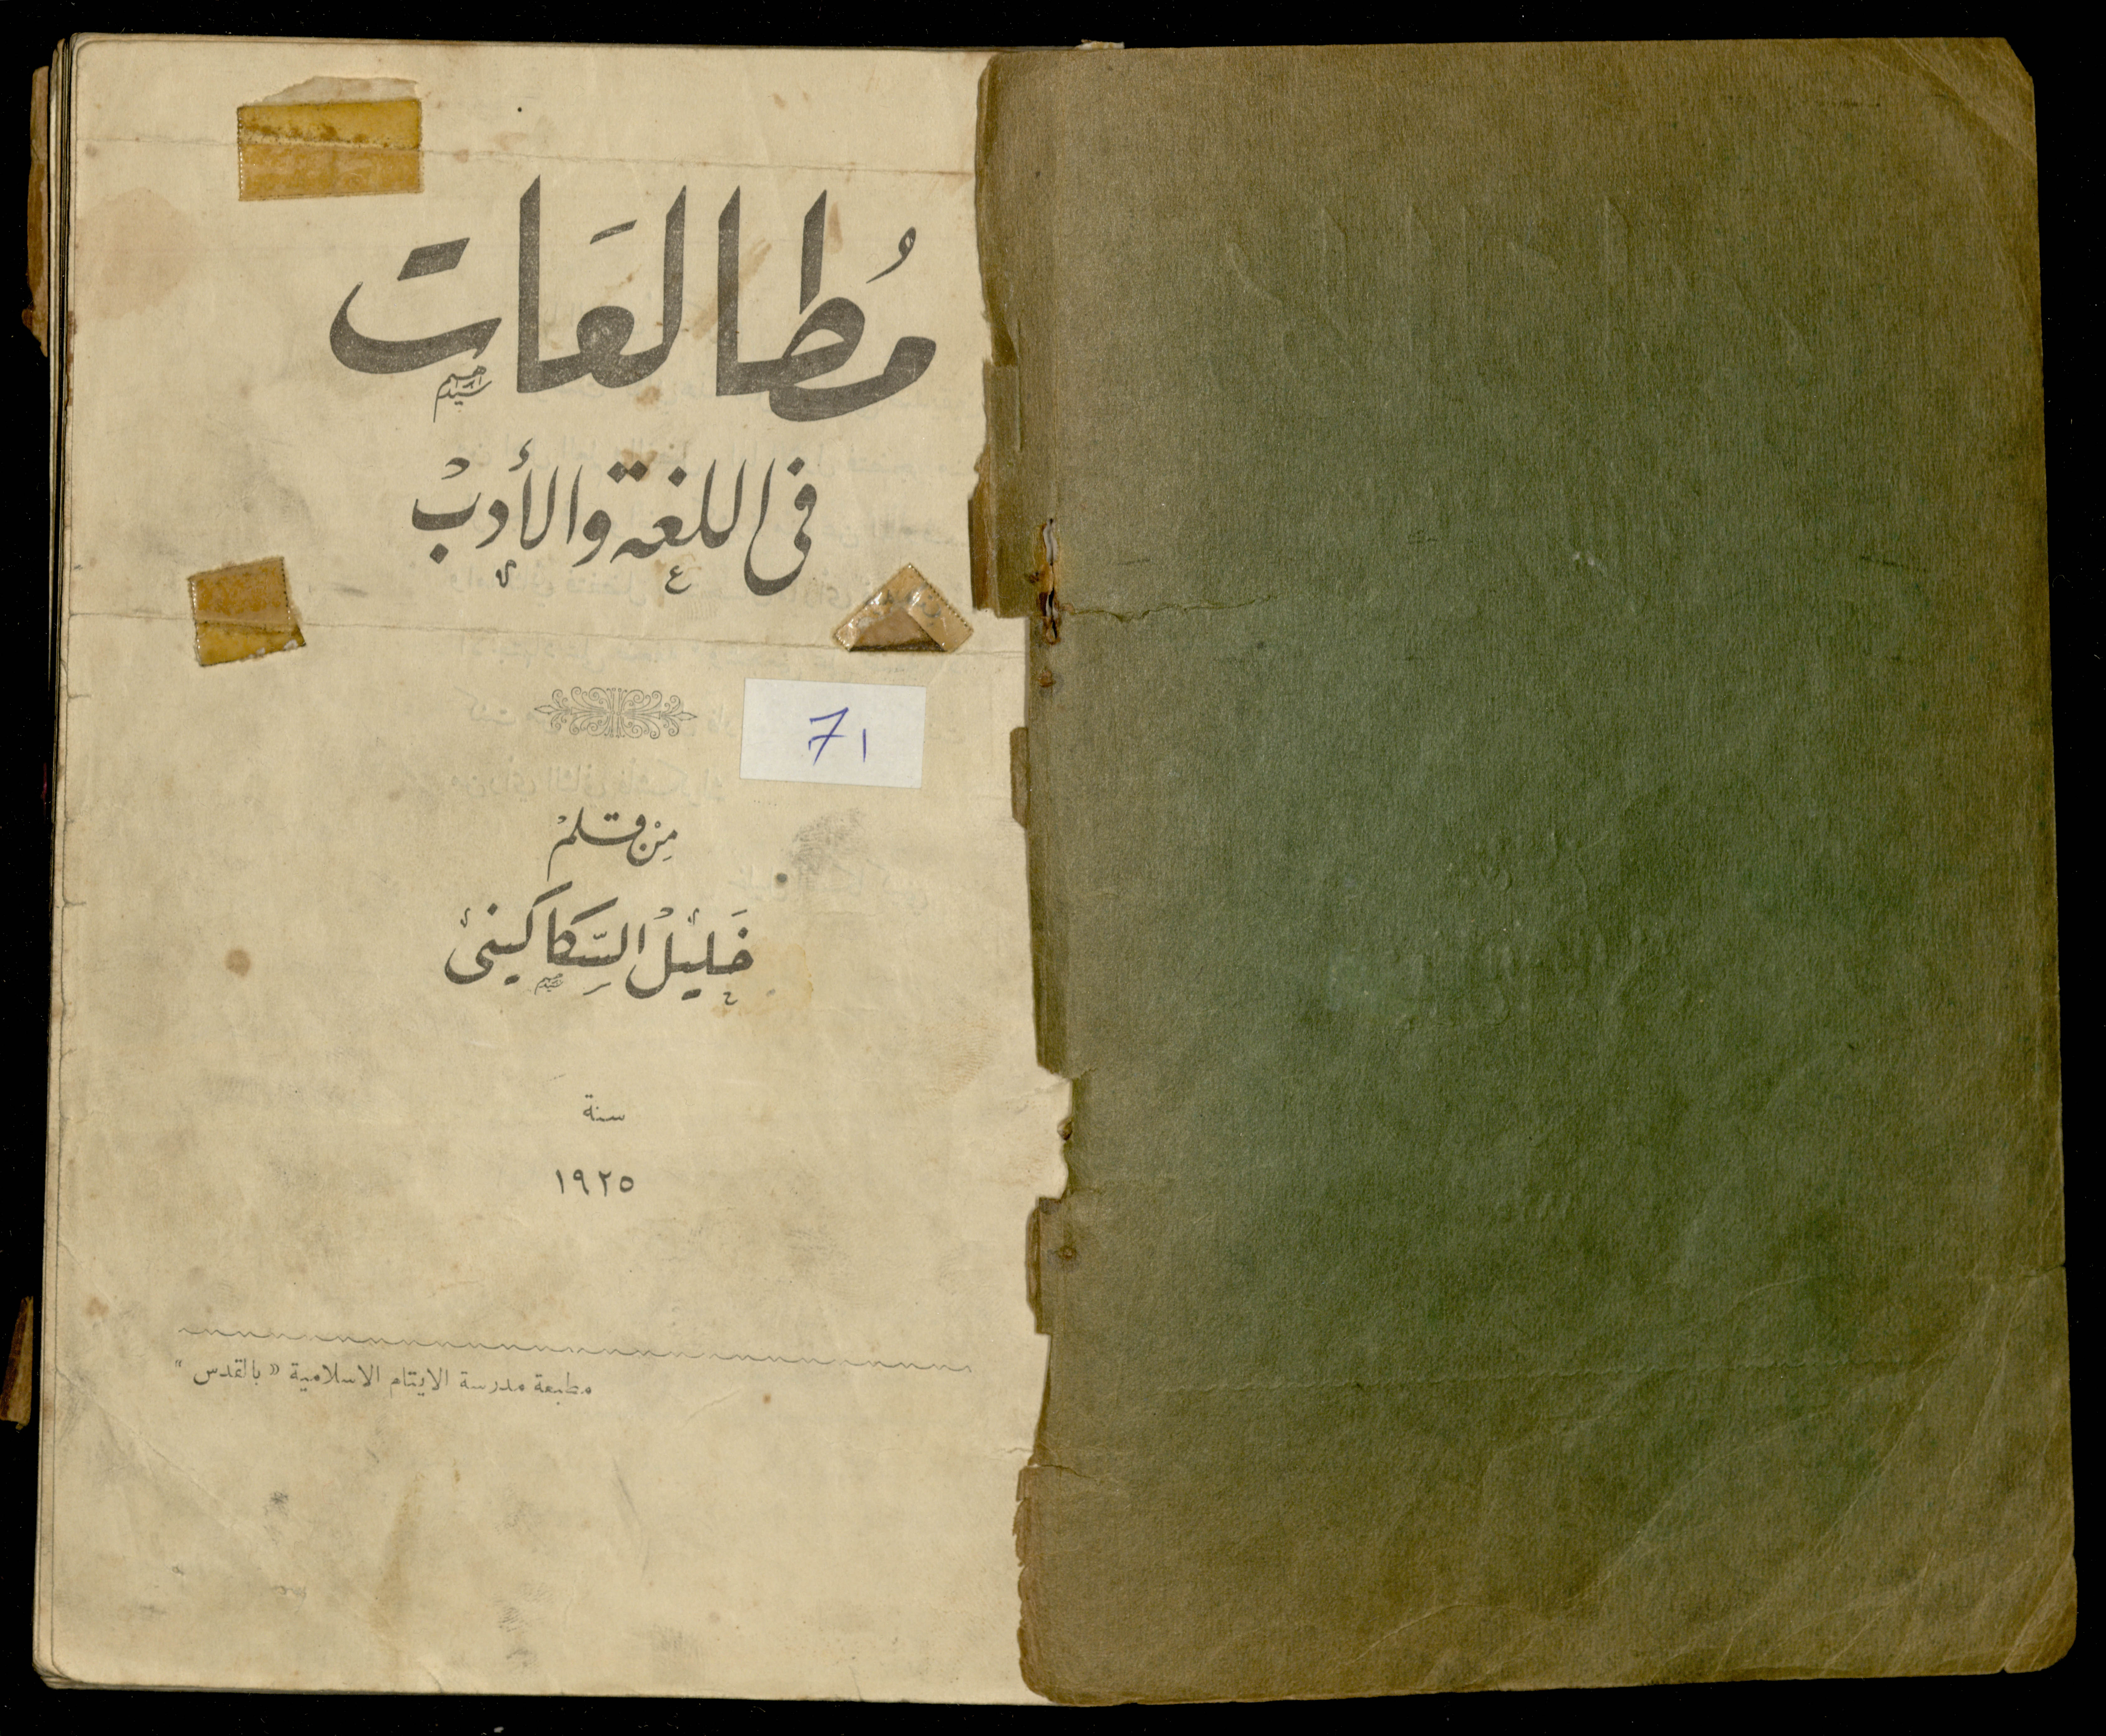 مُطالعَات
فى اللغة والأدبْ
71
مِنْ قلمْ
خَليلْ السِّكاكينى
سنة
١٩٢٥
مطبعة مدرسة الايتام الاسلامية « بالقدس "